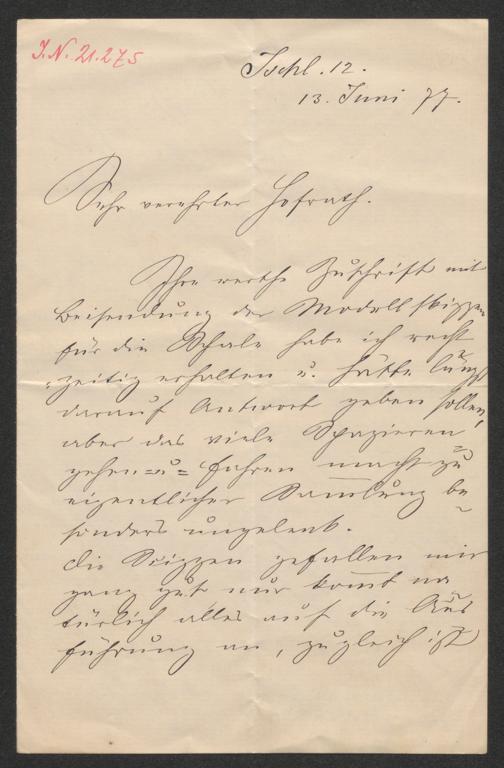 I.N. 21.275
Ischl. 12.
13. Juni 77.
Sehr verehrter Hofrath.
Ihre werthe Zuschrift mit
Beisendung der Modellskizzen
für die Schale habe ich recht
zeitig erhalten u. hätte längst
darauf Antwort geben sollen,
aber das viele Spazieren
gehen =u= fahren macht zu
eigentlicher Samlung be
sonders ungelenk.
Die Scizzen gefallen mir
ganz gut nur komt na
türlich alles auf die Aus
führung an, zugleich ist